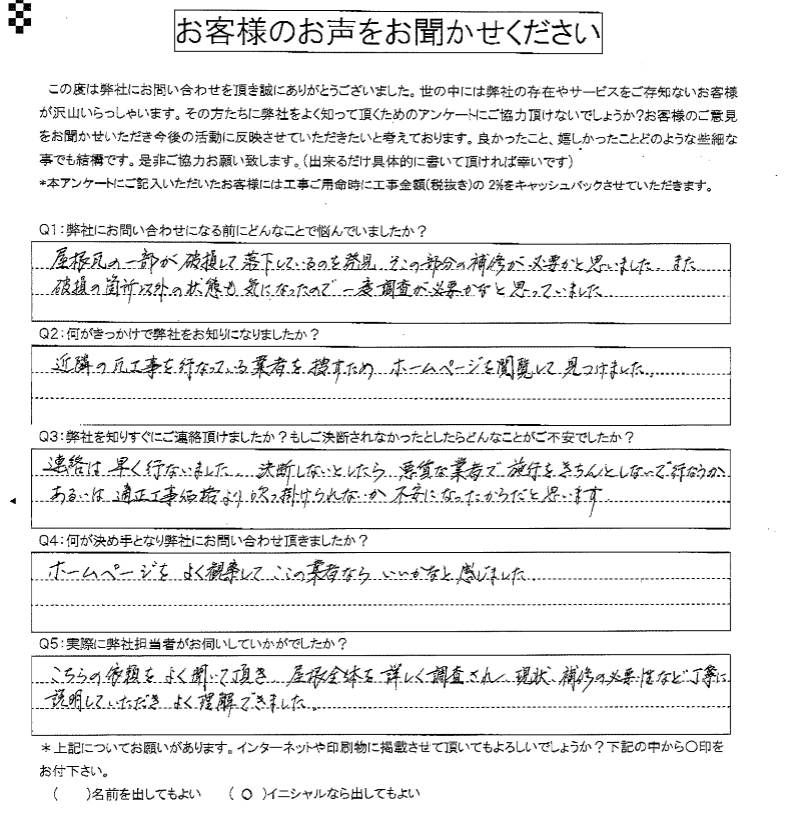 お客様のお声をお聞かせください
この度は弊社にお問い合わせを頂き誠にありがとうございました。世の中には弊社の存在やサービスをご存知ないお客様
が沢山いらっしゃいます。その方たちに弊社をよく知って頂くためのアンケートにご協力頂けないでしょうか?お客様のご意見
をお聞かせいただき今後の活動に反映させていただきたいと考えております。良かったこと、嬉しかったことどのような些細な
事でも結構です。是非ご協力お願い致します。(出来るだけ具体的に書いて頂ければ幸いです)
*本アンケートにご記入いただいたお客様には工事ご用命時に工事金額(税抜き)の 2%をキャッシュバックさせていただきます。
Q1:弊社にお問い合わせになる前にどんなことで悩んでいましたか?
屋根瓦の一部が破損して落下しているのを発見、そこの部分の補修が必要かと思いました。また
破損の箇所以外の状態も気になったので一度調査が必要かなと思っていました
Q2:何がきっかけで弊社をお知りになりましたか?
近隣の瓦工事を行なっている業者を捜すため ホームページを閲覧して見つけました。
Q3:弊社を知りすぐにご連絡頂けましたか?もしご決断されなかったとしたらどんなことがご不安でしたか?
連絡は早く行ないました。決断しないとしたら 悪質な業者で施行をきちんとしないで行なうか
あるいは適正工事価格より吹っ掛けられないか不安になったからだと思います
Q4:何が決め手となり弊社にお問い合わせ頂きましたか?
ホームページをよく観察してここの業者ならいいかなと感じました
Q5:実際に弊社担当者がお伺いしていかがでしたか?
こちらの依頼をよく聞いて頂き、屋根全体を詳しく調査され、現状、補修の必要性など丁寧に
説明していただきよく理解できました。
*上記についてお願いがあります。インターネットや印刷物に掲載させて頂いてもよろしいでしょうか?下記の中から〇印を
お付下さい。
(　　)名前を出してもよい　(　〇　)イニシャルなら出してもよい